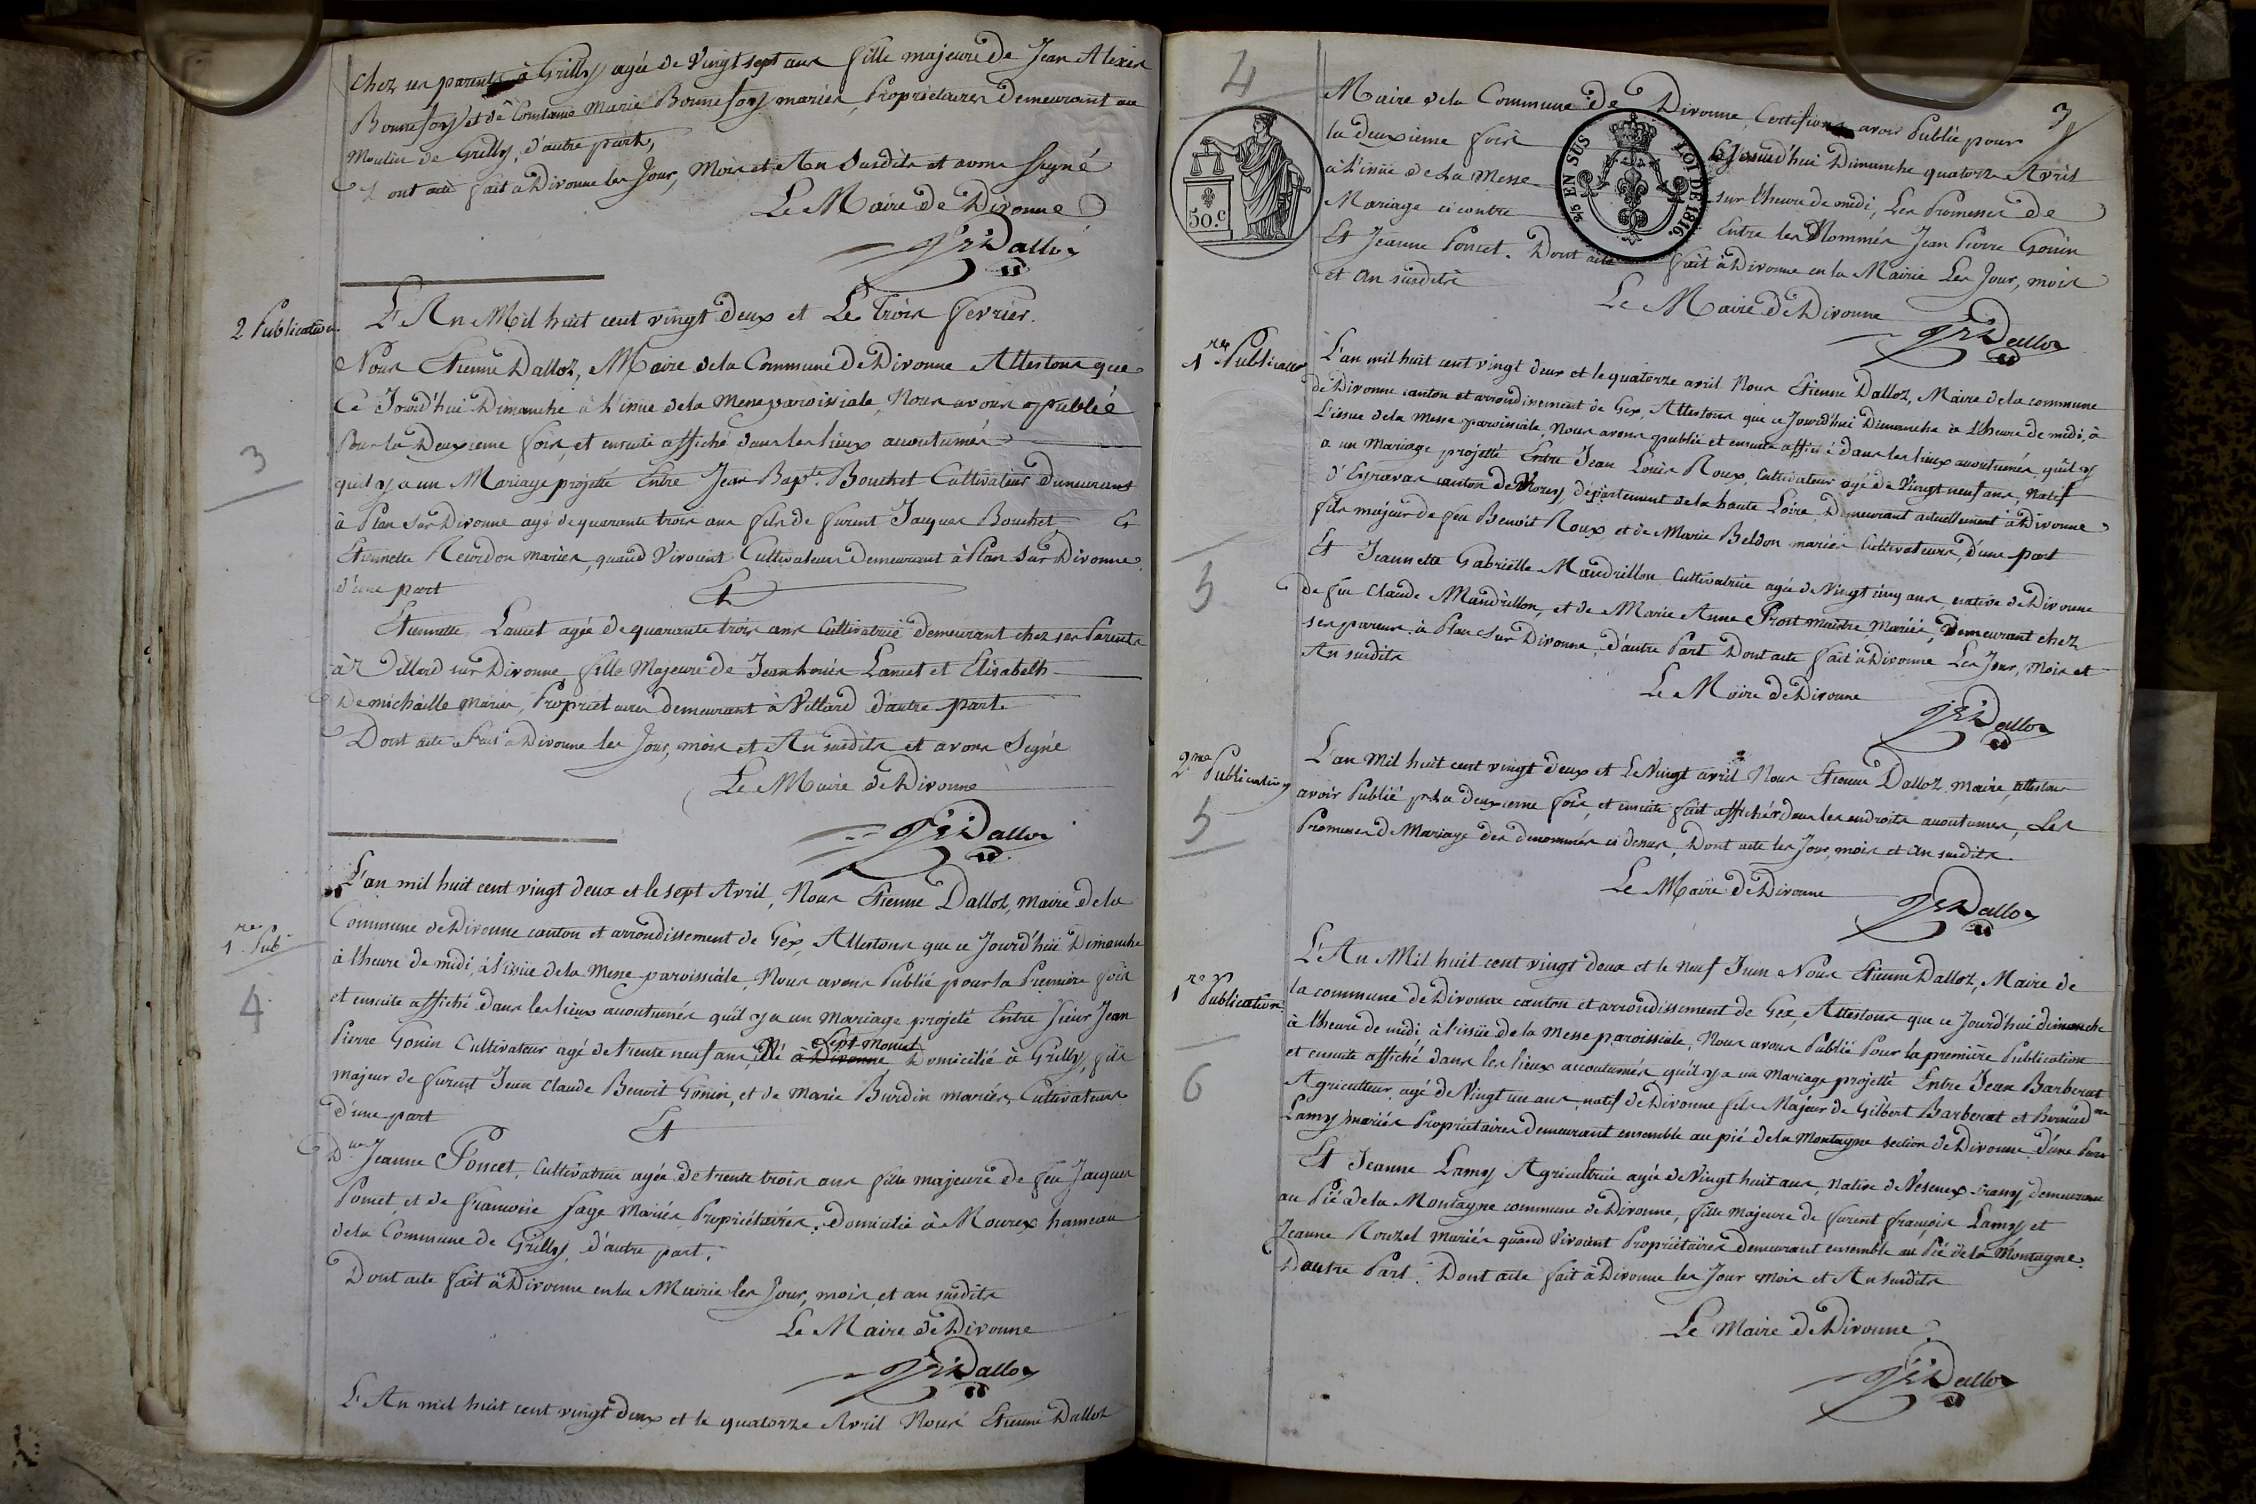 chez ses parents à Grilly agée de vingt sept ans fille majeure de Jean Alexis
Bonnefoy et de Constance Marie Bonnefoy mariés, Propriétaires demeurant au
Moulin de Grilly, d'autre part,
ont acte fait à Divonne les Jour, Mois et An susdits et avons signé
Le Maire de Divonne
Dalloz
2 Publication
L'An Mil huit cent vingt deux et Le Trois fevrier.
Nous Etienne Dalloz, Maire de la Commune de Divonne Attestons que
Ce Jourd'hui Dimanche à l'issüe de la Messe paroissiale, Nous avons publié
Pour la Deuxieme fois, et ensuite affiché dans les lieux accoutumés
3
qu'il y a un Mariage projetté Entre Jean Bapte. Bouchet Cultivateur demeurant
à Plan sur Divonne agé de quarante trois ans fils de furent Jacques Bouchet Et
Etiennette Reurdon mariés, quand Vivoient Cultivateurs demeurant à Plan sur Divonne
d'une part Et
Etiennette Lancet agée de quarante trois ans Cultivatrice demeurant chez ses Parents
à Villard sur Divonne fille Majeure de Jean Louis Lancet et Elisabeth
Demichaille mariés, Propriétaires demeurant à Villard d'autre part.
Dont acte fait à Divonne les Jour, mois et An susdits et avons Signé
Le Maire de Divonne
Dalloz
L'an mil huit cent vingt deux et le sept Avril, Nous Etienne Dalloz, maire de la
1re Pub
Commune de Divonne canton et arrondissement de Gex, Attestons que ce Jourd'hui Dimanche
à l'heure de midi, à l'issüe de la Messe paroissiale, Nous avons Publié pour la Première fois
4
et ensuite affiché dans les lieux accoutumés qu'il y a un Mariage projeté Entre Sieur Jean
Sept Moncel
Pierre Gonin Cultivateur agé de trente neuf ans, Né à Divonne, Domicilié à Grilly, fils
majeur de furent Jean Claude Benoit Gonin, et de Marie Burdin mariés, Cultivateurs
d'une part Et
Jeanne Poncet, Cultivatrice agée de trente trois ans fille majeure de feu Jacques
Poncet, et de françoise Sage Mariés Propriétaires, Domicilié à Mourex hameau
de la Commune de Grilly, d'autre part.
Dont acte fait à Divonne en la Mairie les Jour, mois, et an susdits
Le Maire de Divonne
Dalloz
L'An mil huit cent vingt deux et le quatorze Avril Nous Etienne Dalloz
4
3
Maire de la Commune de Divonne, Certifions avoir Publié pour
la deuxieme fois Ce Jourd'hui Dimanche quatorze Avril
à l'issüe de la Messe sur l'heure de midi, Les Promesses de
Mariage ci contre Entre les Nommés Jean Pierre Gonin
Et Jeanne Poncet. Dont acte fait à Divonne en la Mairie Les Jour, mois
et an susdits
50.c
2/5 EN SUS
LOI DE 1816.
Le Maire de Divonne
Dalloz
1re Publication
L'an mil huit cent vingt deux et le quatorze avril Nous Etienne Dalloz, Maire de la commune
de Divonne canton et arrondissement de Gex, Attestons que ce Jourd'hui Dimanche à l'heure de midi, à
L'issue de la Messe paroissiale, Nous avons publié et ensuite affiché dans les lieux accoutumés, qu'il y
a un Mariage projetté Entre Jean Louis Roux, Cultivateur agé de Vingt neuf ans, Natif
canton de département de la haute Loire, Demeurant actuellement à Divonne
fils majeur de feu Benoit Roux et de Marie Beldon mariés Cultivateurs, d'une part
5
Et Jeannette Gabrielle Mandrillon Cultivatrice agée de Vingt cinq ans, native de Divonne
de feu Claude Mandrillon, et de Marie Anne Prost mariés, Demeurant chez
ses parens à Plan Sur Divonne, d'autre Part Dont acte fait à Divonne Les Jour, Mois et
An susdits
Le Maire de Divonne
Dalloz
2me Publication
L'an Mil huit cent vingt deux et Le Vingt avril Nous Etienne Dalloz, maire, attestons
avoir Publié pr La deuxieme fois, et ensuite fait affichér dans les endroits accoutumés, Les
5
Promesses de Mariage des denommés ci dessus, Dont acte les Jour, mois et an susdits.
Le Maire de Divonne
Dalloz
1re Publication
L'An Mil huit cent vingt deux et le neuf Juin Nous Etienne Dalloz, Maire de
la commune de Divonne canton et arrondissement de Gex, Attestons que ce Jourd'hui dimanche
à l'heure de midi à l'issüe de la Messe paroissiale, Nous avons Publié Pour la première Publication
et ensuite affiché dans les lieux accoutumés qu'il y a un Mariage projetté Entre Jean Barberat
6
Agriculteur, agé de Vingt un ans, natif de Divonne fils Majeur de Gilbert Barberat et
Lamy mariés Propriétaires demeurant ensemble au pié de la Montagne section de Divonne, d'une Part
Et Jeanne Lamy Agricultrice agée de Vingt huit ans, Native de demeurant
au Pié de la Montagne commune de Divonne, fille Majeure de furent françois Lamy et
Jeanne Rouzet mariés quand Vivoient Propriétaires demeurant ensemble au Pié de la Montagne
Dautre Part. Dont acte fait à Divonne les Jour mois et An Susdits
Le Maire de Divonne
Dalloz